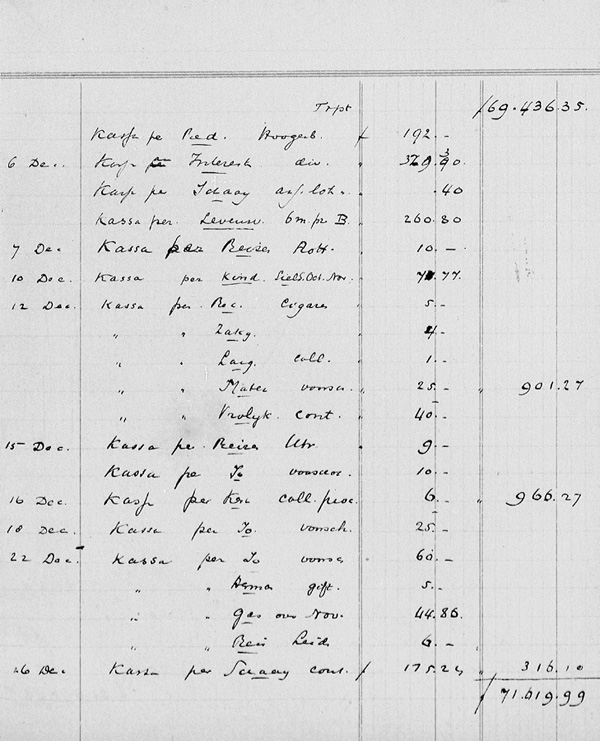 Trpt f 69.436.35.
Kassa pe Red. Hoogerb. f 192.-
6 Dec. Kassa pe Interest div. " 329.90
Kassa pe Schaay " .40
Kassa per Levensv. 6 m. pr B. " 260.80
7 Dec Kassa per Reizen Rott. " 10.-
10 Dec. Kassa per Kind. Oct. Nov. " 77
12 Dec. Kassa per Rec. Cigaren " 5.-
" " Zakg. " 4-
" " Larg. coll. " 1.-
" " Mater voorsc. " 25.- " 901.27
" " Vrolyk. cont. " 40.-
15 Dec. Kassa pe Reizen Utr. 9-
Kassa pe To voorsc. 10.-
16 Dec. Kassa per coll. proc. 6.- " 966.27
18 Dec. Kassa per To voorsch. 25-
22 Dec. Kassa per To voorsc 60.-
" " gift. 5.-
" " Gas over Nov. 44.86.
" " Reis Leid. 6.-
26 Dec Kassa per Schaay cont. f 175.24 " 316.10
f 71.619.99